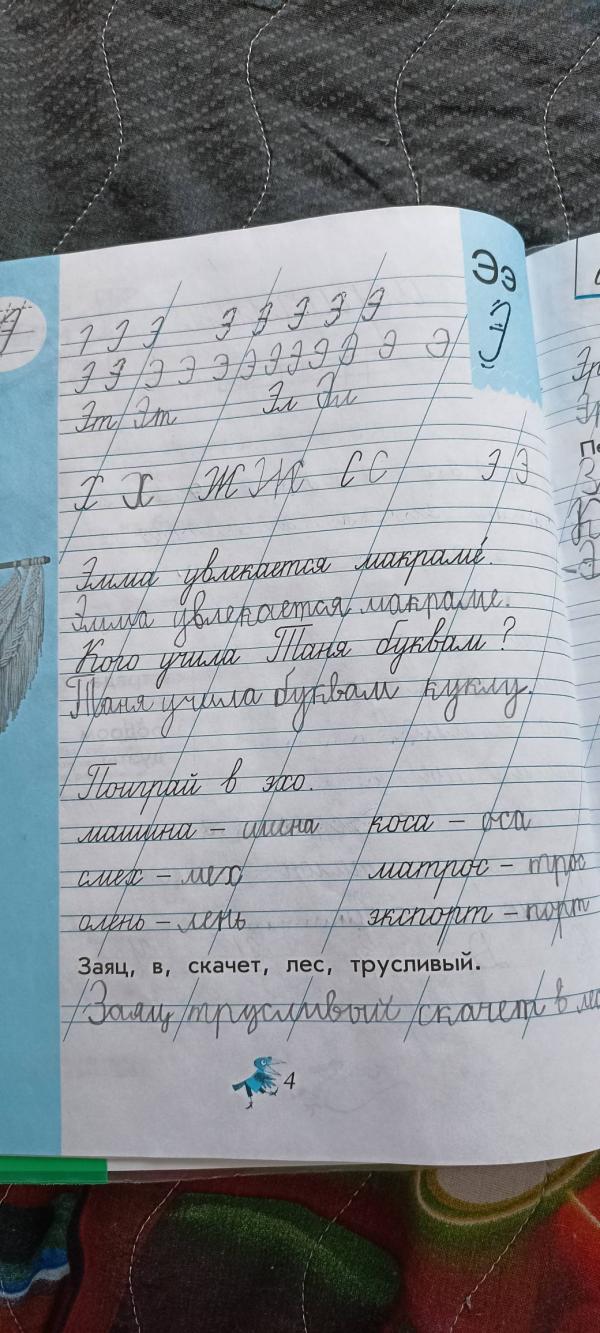 Ээ
Э
Э Э Э Э Э Э Э Э
Э Э Э Э Э Э Э Э Э Э Э
Эт Эт Эл Эл
Х Х Ж Ж С С Э Э
Эмма увлекается макраме́.
Эмма увлекается макраме.
Кого учила Таня буквам?
Таня учила буквам куклу.
Поиграй в эхо.
машина – шина коса – оса
смех – мех матрос – трос
олень – лень экспорт – порт
Заяц, в, скачет, лес, трусливый.
Заяц трусливый скачет в лес
4